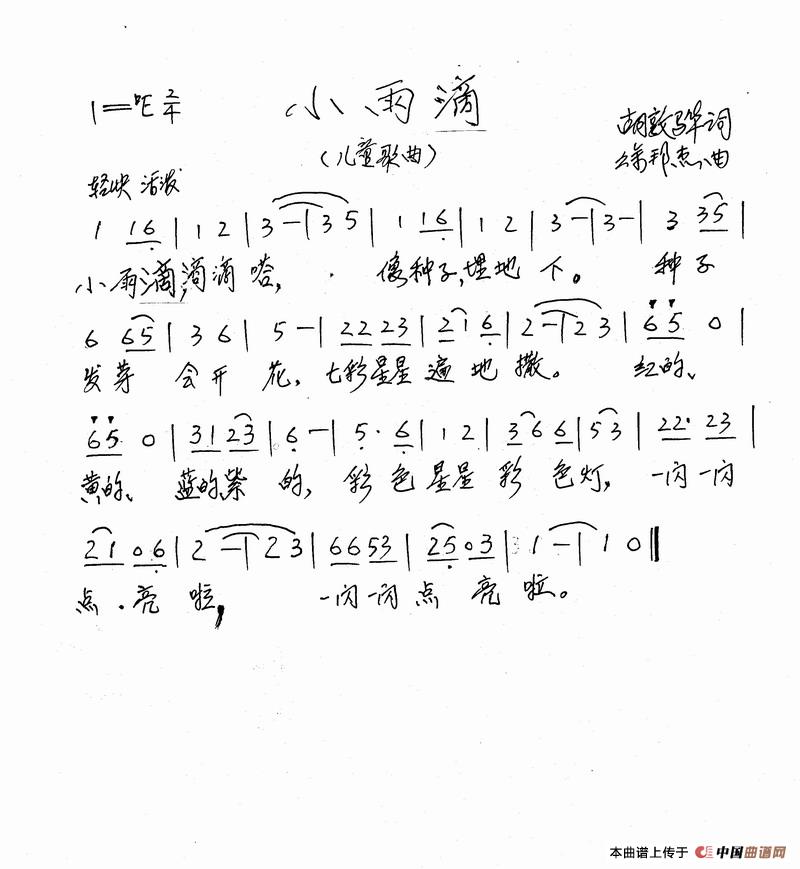 1=♭E 2/4
小雨滴
(儿童歌曲)
胡敦骅词
徐邦杰曲
轻快 活泼
1 16 | 1 2 | 3 — | 3 5 | 1 16 | 1 2 | 3 — | 3 — | 3 35 |
小雨滴,滴滴嗒, 像种子,埋地下。 种子
6 65 | 3 6 | 5 — | 22 23 | 21 6 | 2 — | 2 3 | 65 0 |
发芽 会开花, 七彩星星遍地撒。 红的、
65 0 | 31 23 | 6 — | 5· 6 | 1 2 | 36 6 | 53 | 22· 23 |
黄的、 蓝的紫的, 彩色星星彩色灯, 一闪一闪
21 06 | 2 — | 2 3 | 66 53 | 25 03 | 1 — | 1 0 ‖
点·亮啦, 一闪一闪点亮啦。
本曲谱上传于 中国曲谱网